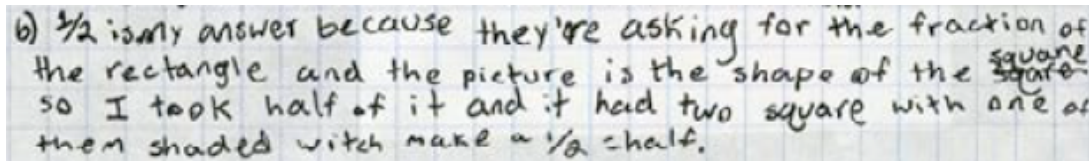 6) 1/2 is my answer because they're asking for the fraction of
the rectangle and the picture is the shape of the square
so I took half of it and it had two square with one of
them shaded witch make a 1/2 = half.